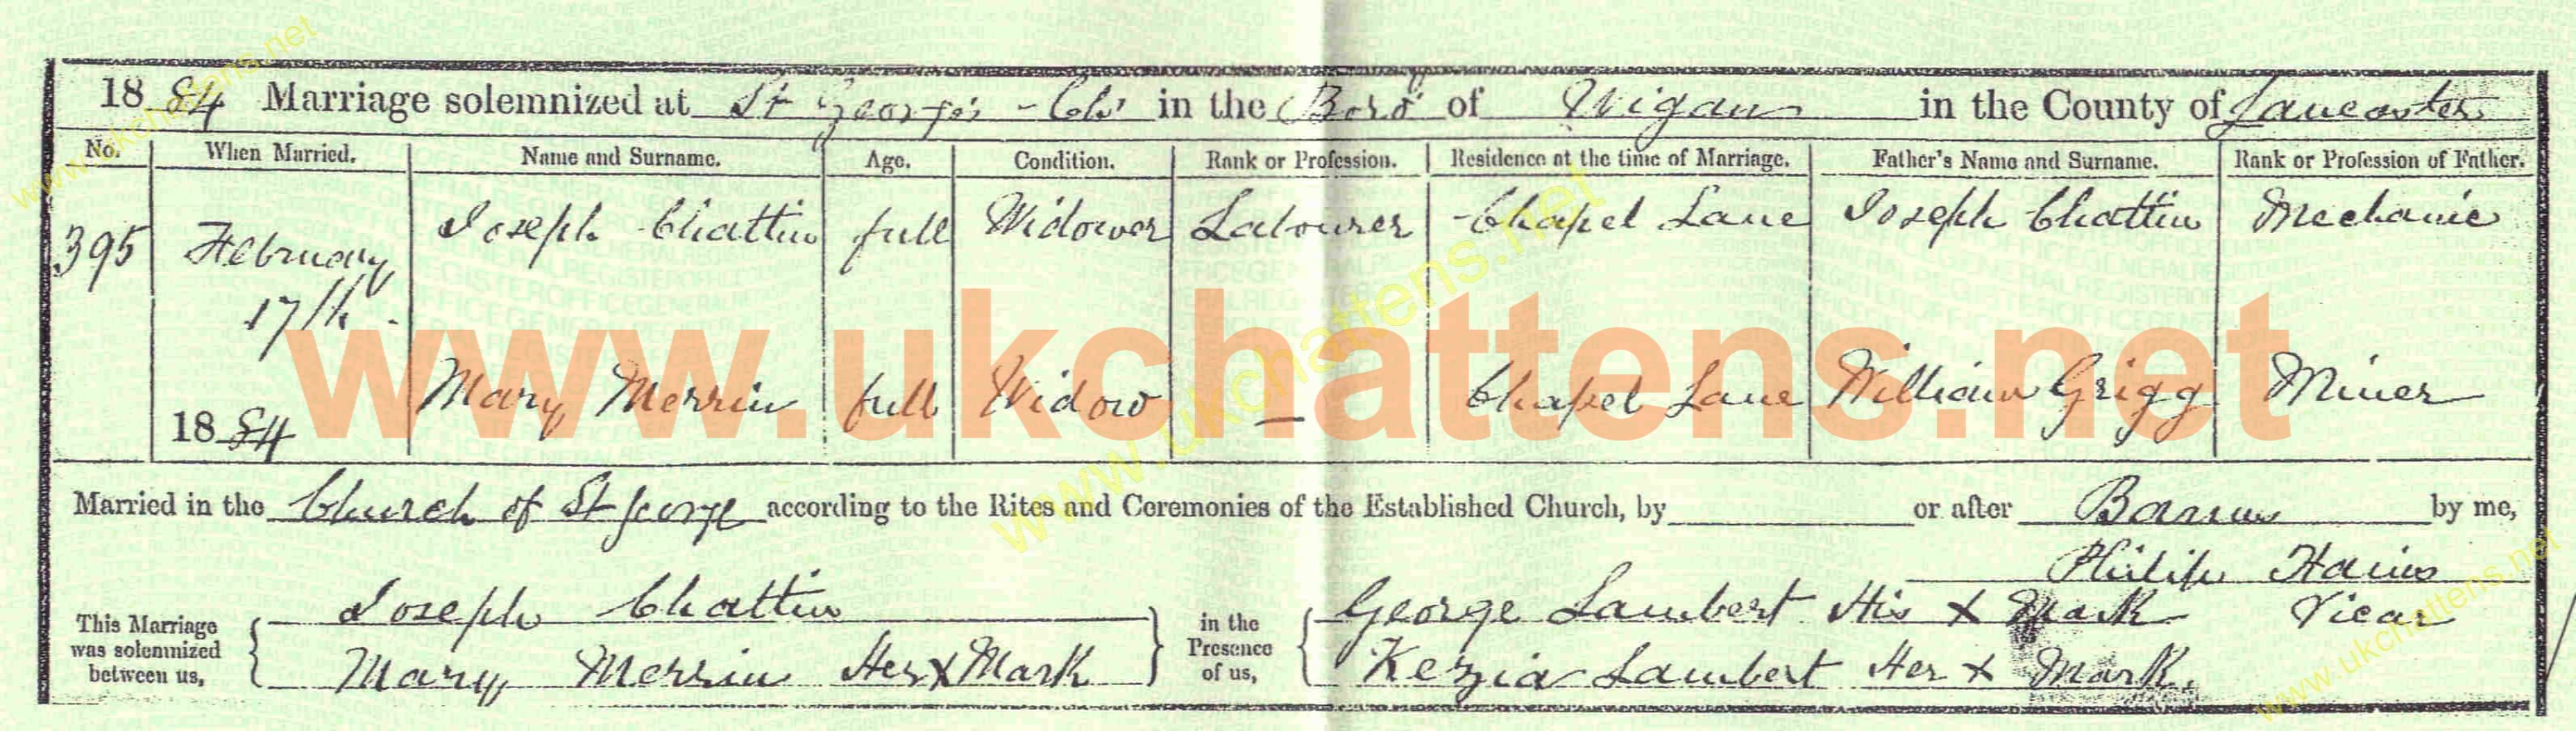 1884 Marriage solemnized at St George's Ch: in the Boro' of Wigan in the County of Lancaster
No. When Married. Name and Surname. Age. Condition. Rank or Profession. Residence at the time of Marriage. Father's Name and Surname. Rank or Profession of Father.
395 February 17th 1884 Joseph Chattin full Widower Labourer Chapel Lane Joseph Chattin Mechanic
Mary Merrin full Widow – Chapel Lane William Grigg Miner
www.ukchattens.net
Married in the Church of St George according to the Rites and Ceremonies of the Established Church, by or after Banns by me,
Philip Hains
Vicar
This Marriage was solemnized between us,
Joseph Chattin
Mary Merrin Her X Mark
in the Presence of us,
George Lambert His X Mark
Kezia Lambert Her X Mark.
www.ukchattens.net
www.ukchattens.net
www.ukchattens.net
www.ukchattens.net